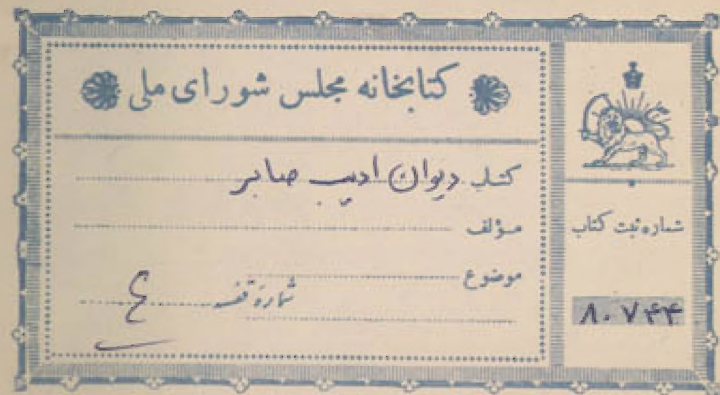 کتابخانه مجلس شورای ملی
کتاب دیوان ادیب صابر
مؤلف
موضوع
شمارهٔ قفسه ٤
شماره ثبت کتاب
۸۰۷۴۴